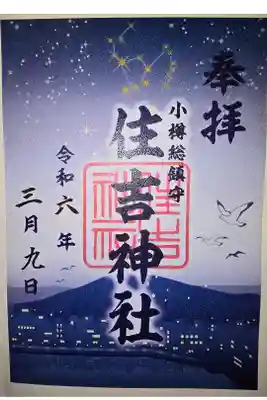 奉拝
小樽総鎮守
住吉神社
令和六年
三月九日